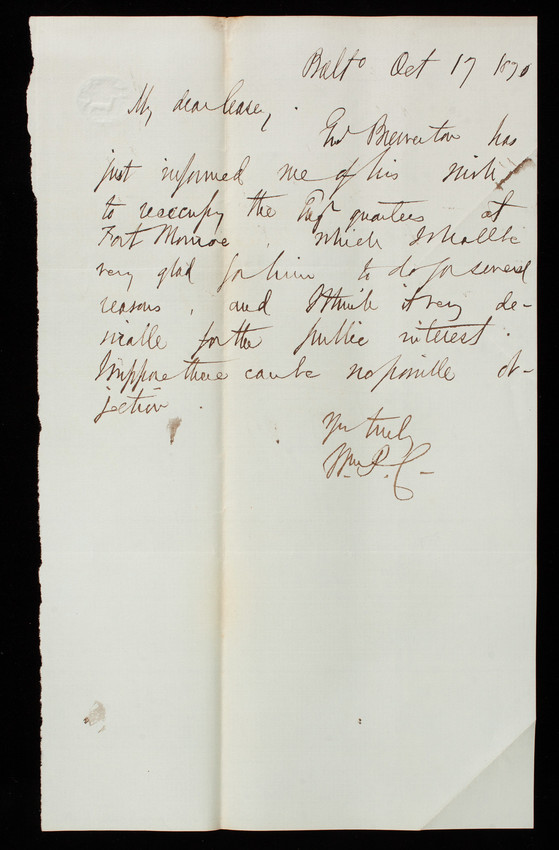 Balto Oct 17 1870
My dear Casey,
Genl Brewerton has
just informed me of his wish
to reoccupy the Engr quarters at
Fort Monroe, which I shall be
very glad for him to do for several
reasons, and I think it very de-
sirable for the public interest.
I suppose there can be no possible ob-
jection.
Yrs truly
Wm P. C-